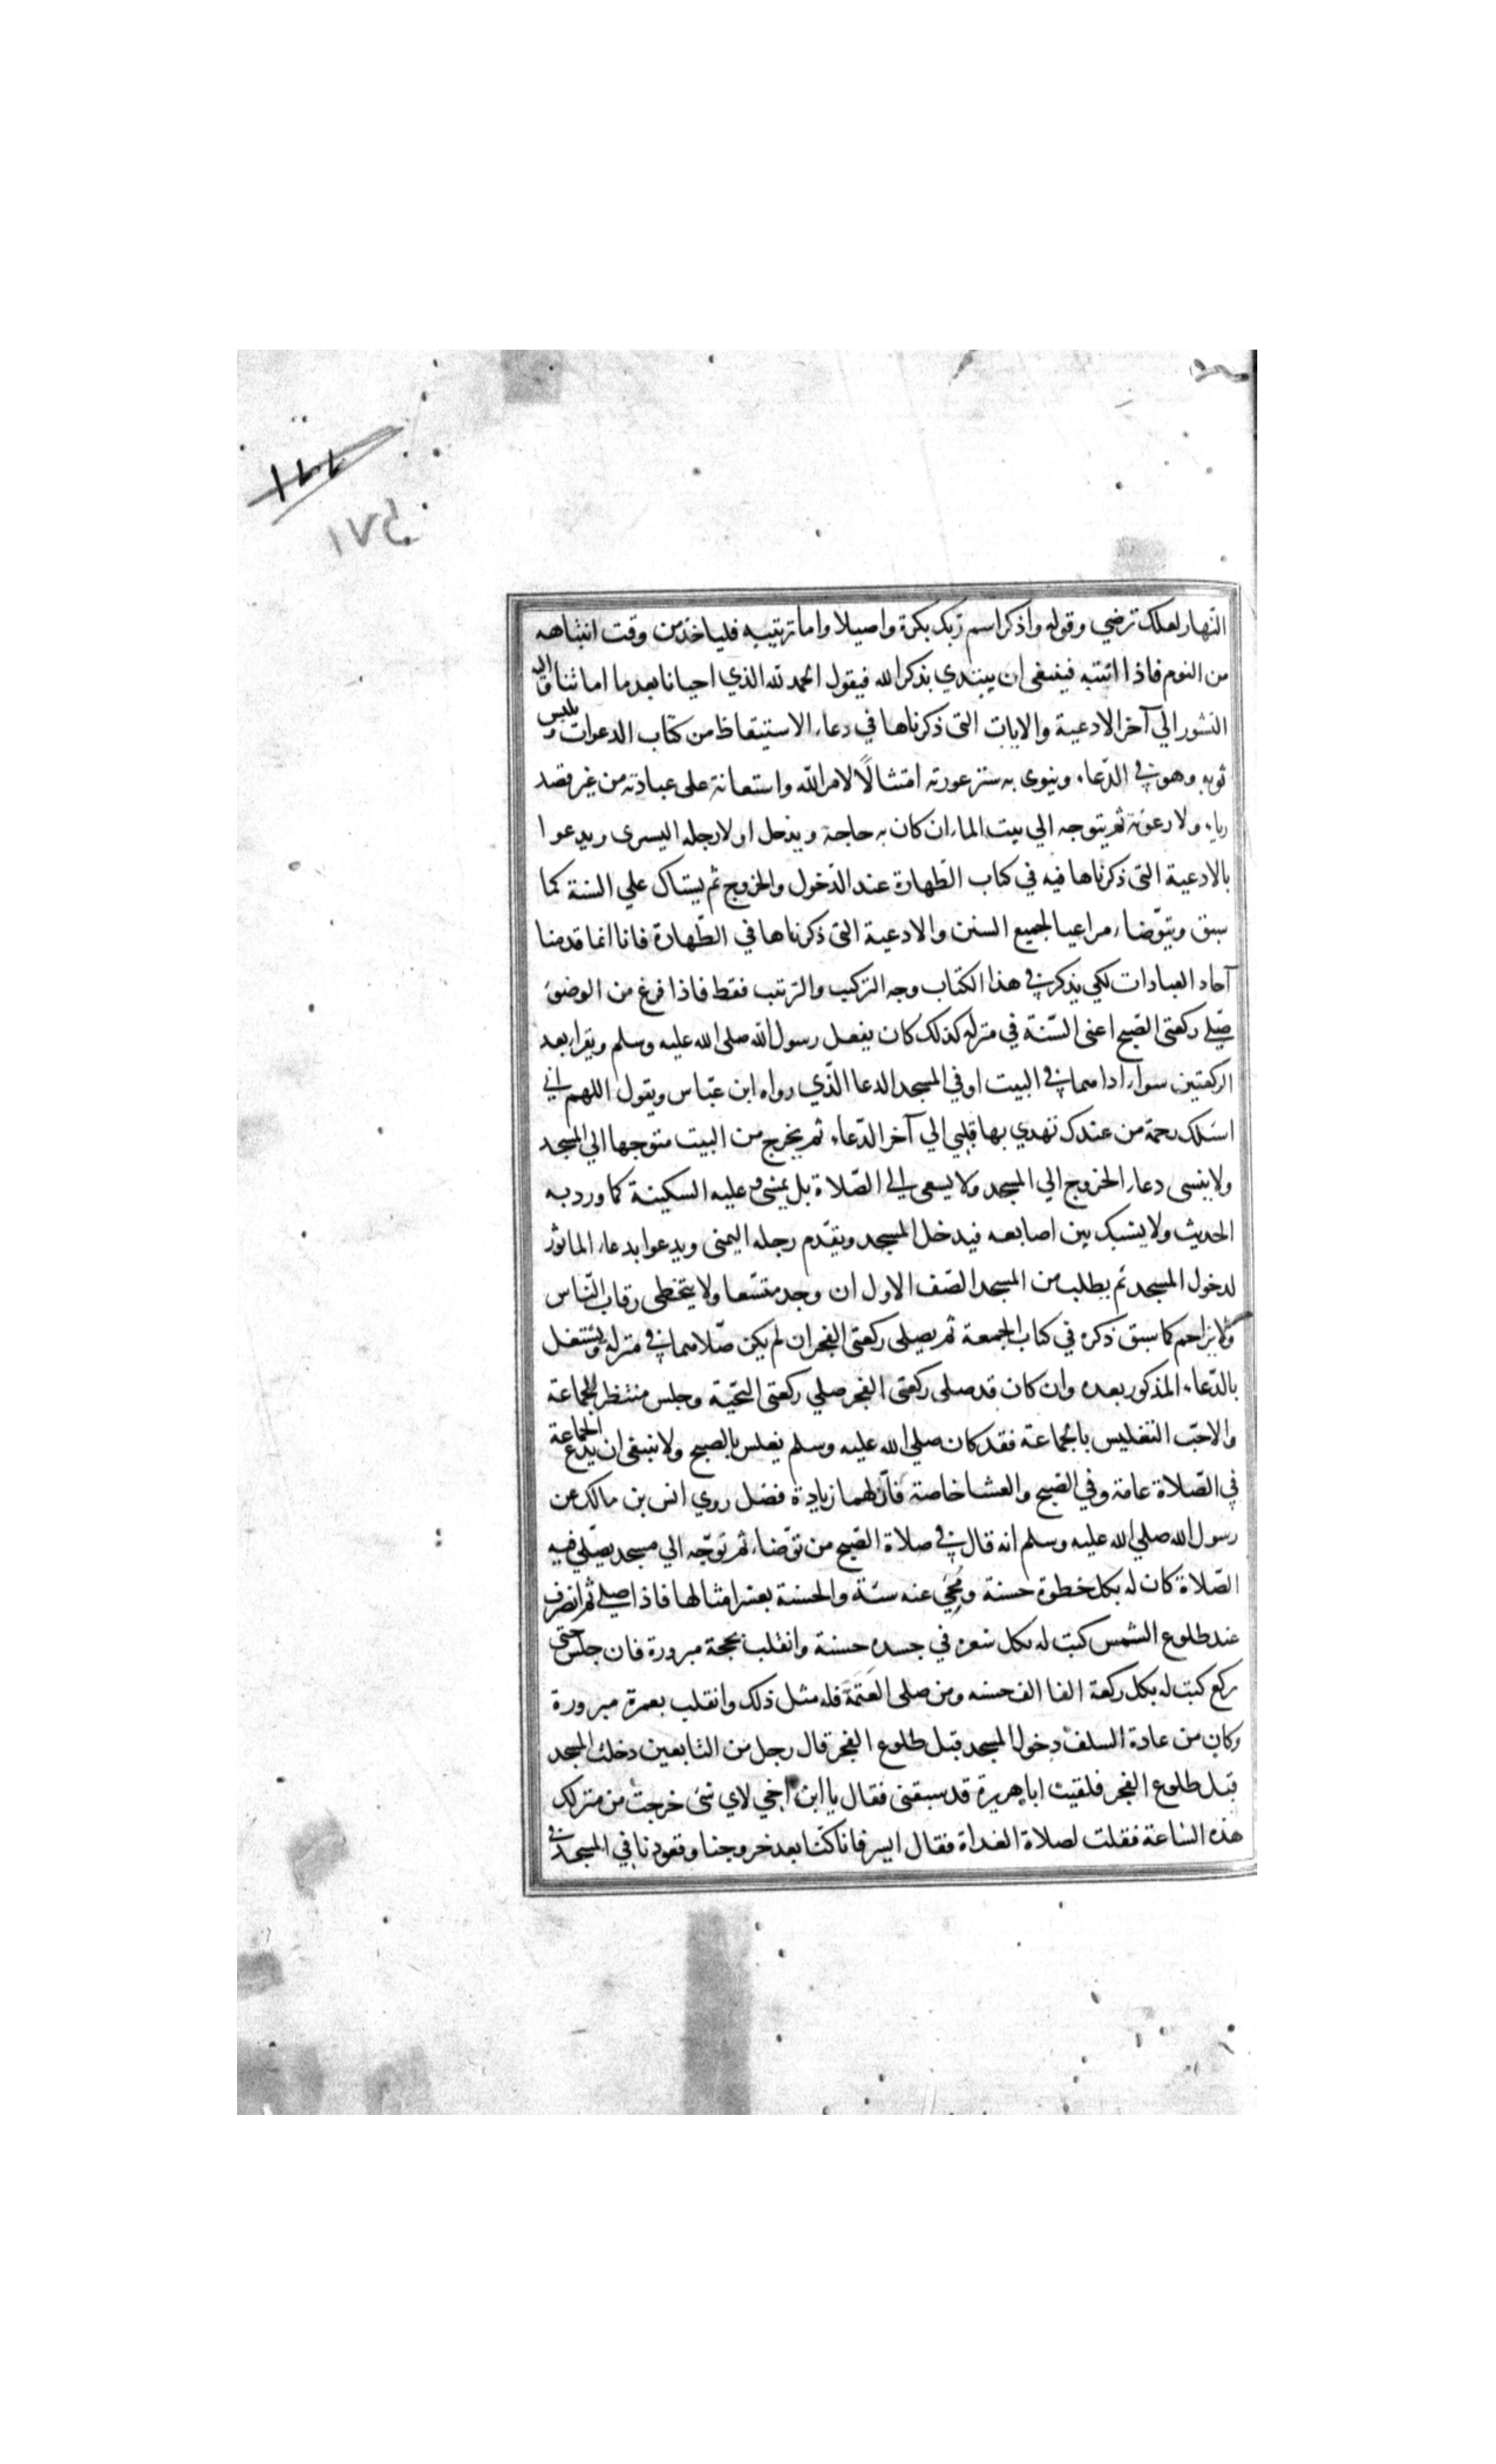 النهار لعلك ترضي وقوله واذكر اسم ربك بكرة واصيلا واما ترتيبه فلياخذ من وقت انتباهه
من النوم فاذا انتبه فينبغى ان يبتدي بذكر الله فيقول الحمد لله الذي احيانا بعدما اماتنا واليه
النشور الي آخر الادعية والايات التى ذكرناها في دعاء الاستيقاظ من كتاب الدعوات ويلبس
ثوبه وهو في الدّعاء وينوى به ستر عورته امتثالًا لامر الله واستعانة على عبادته من غير قصد
رياء ولا رعونة ثم يتوجه الي بيت الماء ان كان به حاجة ويدخل اولا رجله اليسرى ويدعوا
بالادعية التى ذكرناها فيه في كتاب الطّهارة عند الدّخول والخروج ثم يستاك علي السنة كما
سبق ويتوّضاء مراعيا لجميع السنن والادعية التى ذكرناها في الطّهارة فانا انما قدمنا
آحاد العبادات لكي يذكر في هذا الكتاب وجه التركيب والترتب فقط فاذا فرغ من الوضوء
صّلي ركعتى الصّبح اعنى السّنة في منزله كذلك كان يفعل رسول الله صلى الله عليه وسلم ويقرا بعد
الركعتين سواء اداهما في البيت او في المسجد الدعا الّذي رواه ابن عبّاس ويقول اللهم اني
اسئلك رحمة من عندك تهدي بها قلبي الي آخر الدّعاء ثم يخرج من البيت متوجها الي المسجد
ولا ينسى دعاء الخروج الي المسجد ولا يسعى الي الصّلاة بل يمشى وعليه السكينة كما ورد به
الحديث ولا يشبك بين اصابعه فيدخل المسجد ويقدّم رجله اليمنى ويدعوا بدعاء الماثور
لدخول المسجد ثم يطلب من المسجد الصّف الاول ان وجد متسّعا ولا يتخطى رقاب النّاس
ولا يزاحم كما سبق ذكره في كتاب الجمعة ثم يصلى ركعتى الفجر ان لم يكن صّلاهما في منزله ويشتغل
بالدّعاء المذكور بعده وان كان قد صلى ركعتى الفجر صلي ركعتى التحيّة وجلس منتظر للجماعة
والاحبّ التغليس بالجماعة فقد كان صلي الله عليه وسلم يغلس بالصبح ولا ينبغى ان يدع الجماعة
في الصّلاة عامة وفي الصّبح والعشا خاصة فانّ لهما زيادة فضل روي انس بن مالك عن
رسول الله صلي الله عليه وسلم انه قال في صلاة الصّبح من توّضاء ثم توّجه الي مسجد يصّلي فيه
الصّلاة كان له بكل خطوة حسنة ومُحي عنه سئة والحسنة بعشر امثالها فاذا صلي ثم انصرف
عند طلوع الشمس كبت له بكل شعره في جسده حسنة وانقلب بحجة مبرورة فان جلس حتى
يركع كبت له بكل ركعة الفا الف حسنه ومن صلى العَتمَة فله مثل ذلك وانقلب بعمرة مبرورة
وكان من عادة السلف دخول المسجد قبل طلوع الفجر قال رجل من التابعين دخلت المسجد
قبل طلوع الفجر فلقيت ابا هريرة قد سبقنى فقال يا ابن اخي لاي شئ خرجت من منزلك
هذه الساعة فقلت لصلاة الغداة فقال ابسر فانا كنّا بعد خروجنا وقعودنا في المسجد في